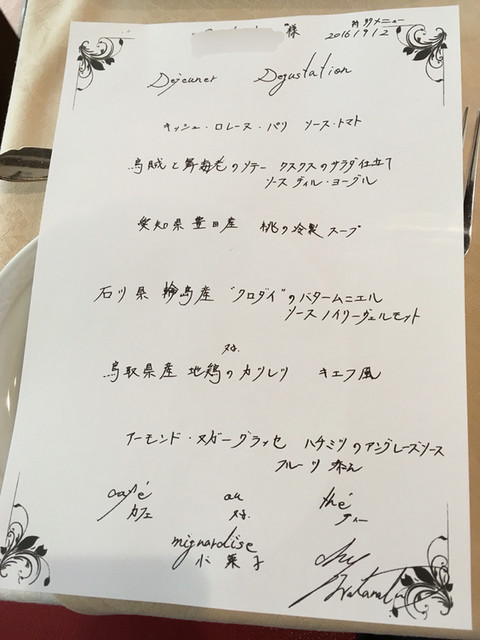 様
特別メニュー
2016 9/2
Dejeuner Degustation
キッシュ・ロレーヌ・パリ ソース・トマト
烏賊と鮮海老のソテー クスクスのサラダ仕立て
ソース ディル・ヨーグル
愛知県豊田産 桃の冷製スープ
石川県 輪島産 "クロダイ"のバタームニエル
ソース ノイリーヴェルモット
又は
鳥取県産 地鶏のカツレツ キエフ風
アーモンド・ヌガーグラッセ ハチミツのアングレーズソース
フルーツ 添え
café au thé
カフェ 又は ティー
mignardise
小菓子
Watanabe